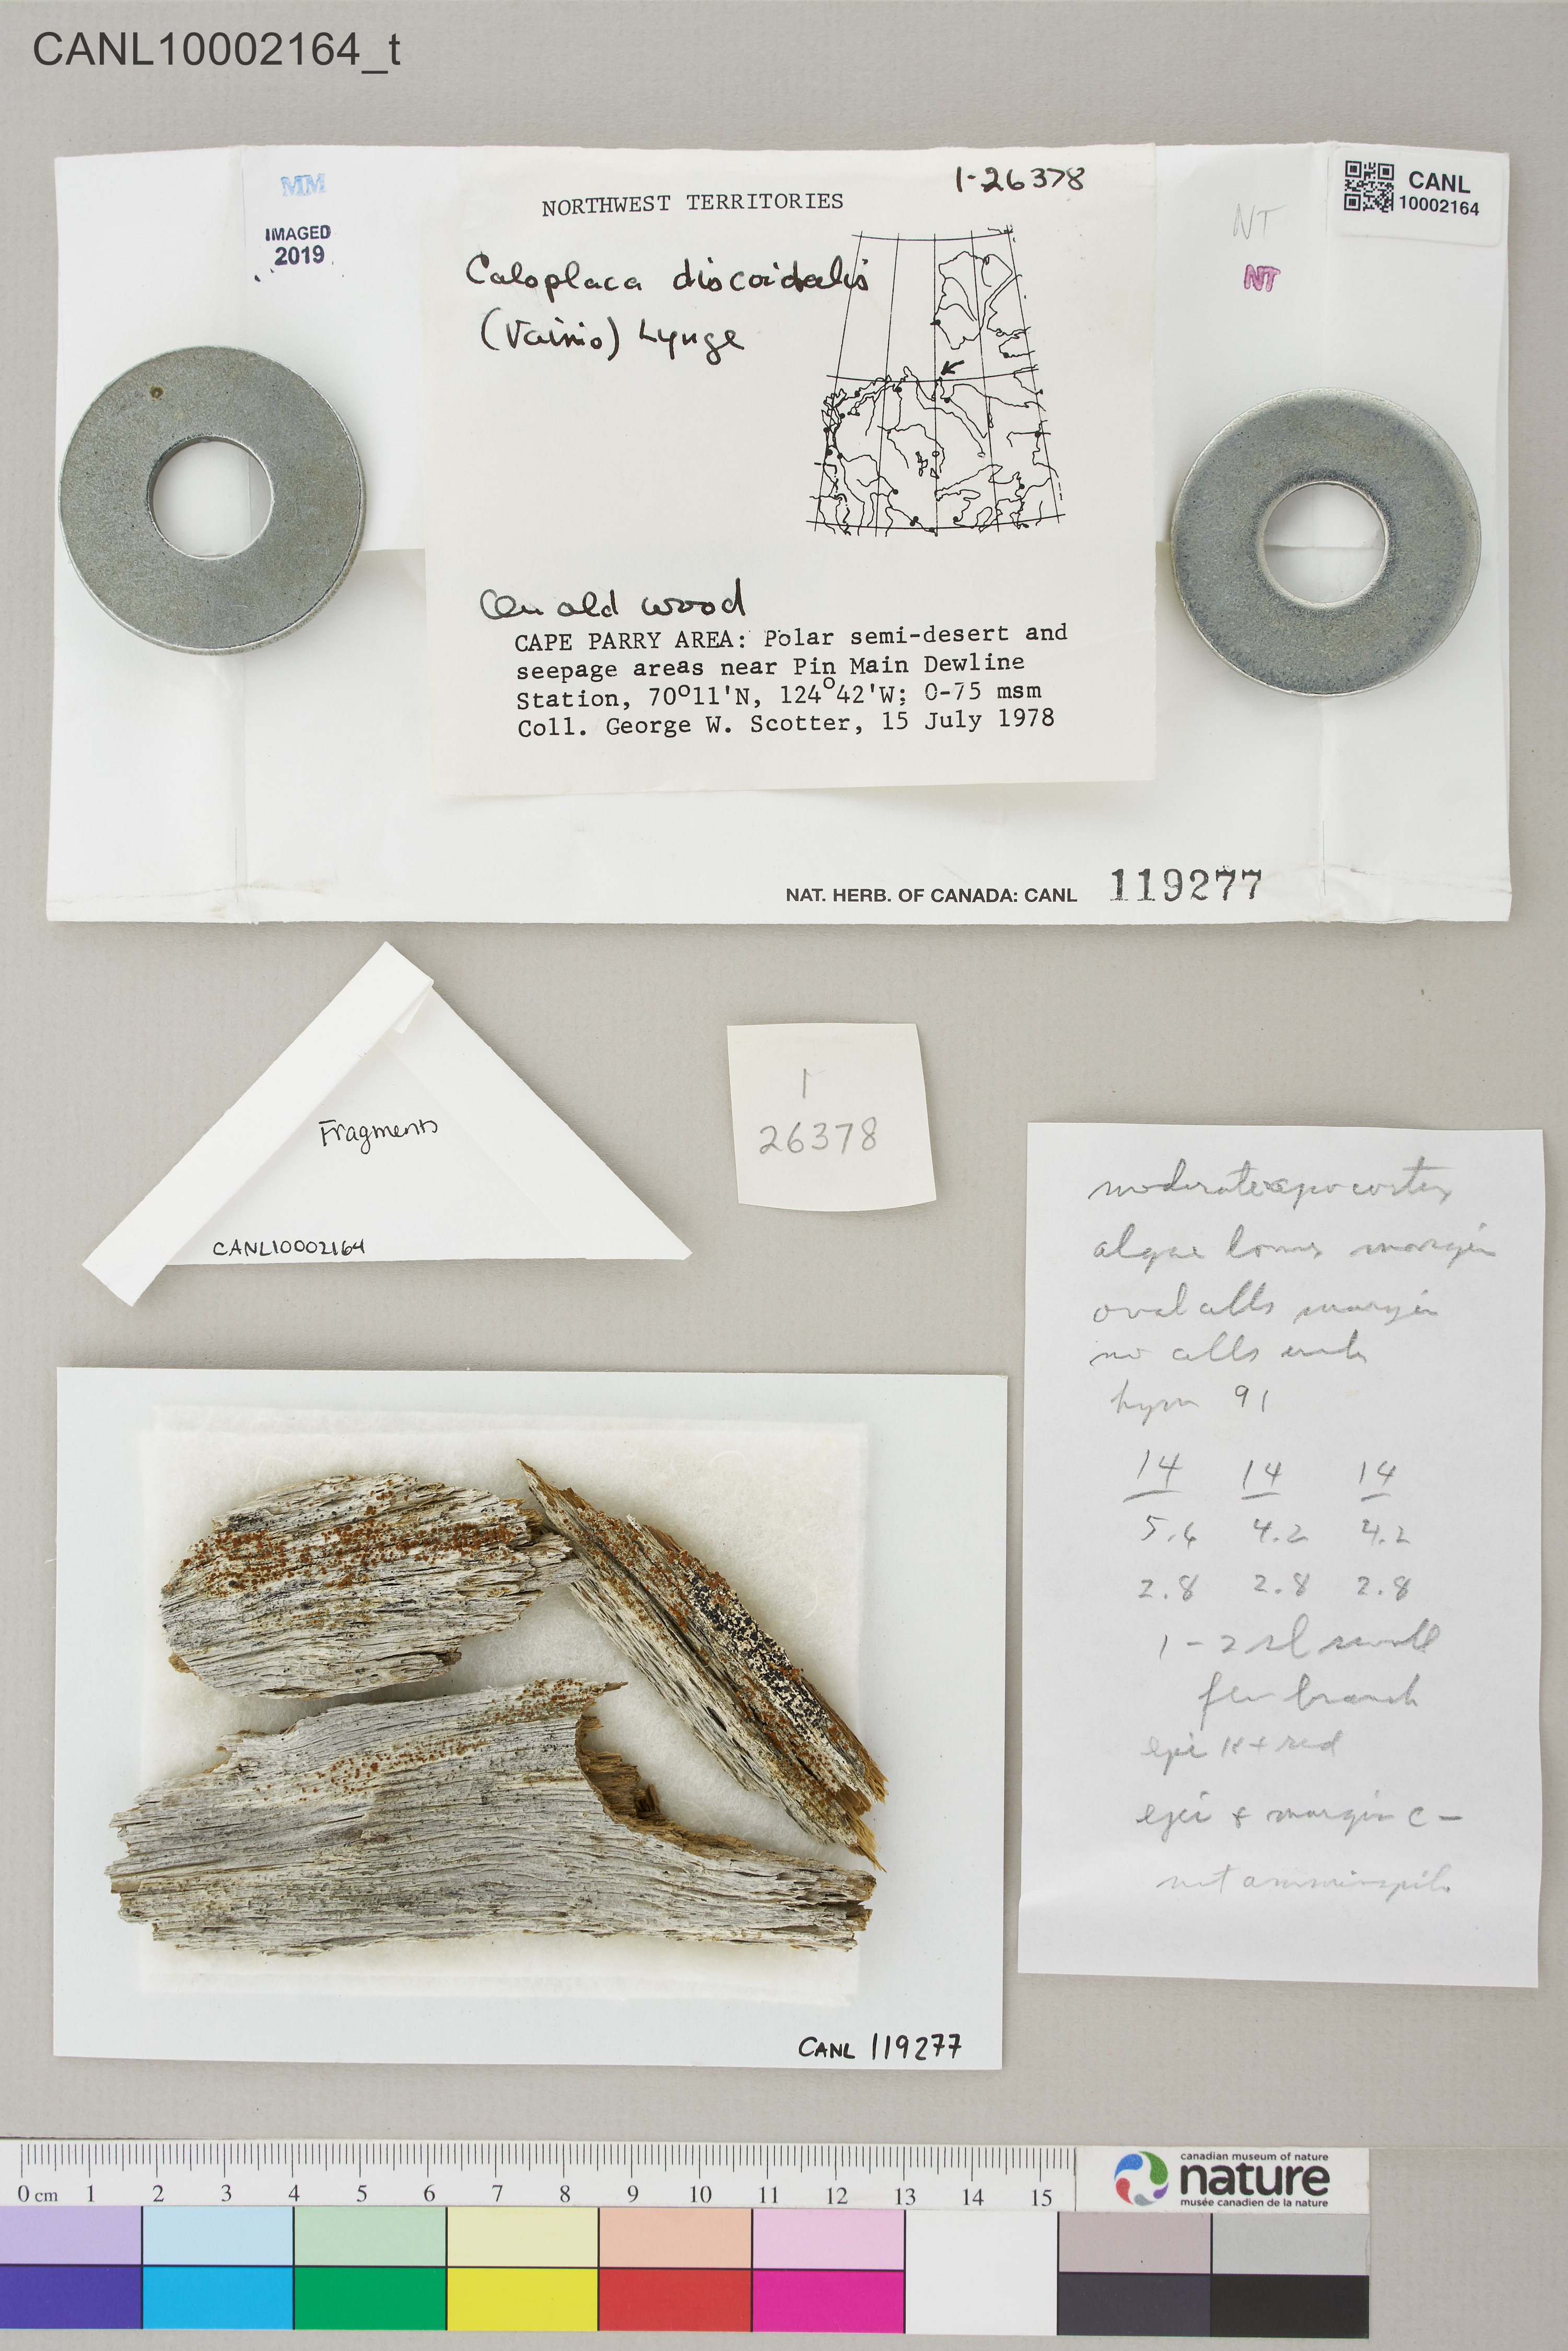 CANL10002164_t
MM
IMAGED
2019
NORTHWEST TERRITORIES
1-26378
NT
NT
CANL
10002164
Caloplaca discoidalis
(Vainio) Lynge
On old wood
CAPE PARRY AREA: Polar semi-desert and
seepage areas near Pin Main Dewline
Station, 70°11'N, 124°42'W; 0-75 msm
Coll. George W. Scotter, 15 July 1978
NAT. HERB. OF CANADA: CANL 119277
Fragments
CANL10002164
1
26378
moderate apo cortex
algae lower margin
oval cells margin
no cells
hym 91
14 14 14
5.6 4.2 4.2
2.8 2.8 2.8
1-2 sl swoll
few branch
epi K+ red
epi + margin C-
not ammiospila
CANL 119277
0 cm 1 2 3 4 5 6 7 8 9 10 11 12 13 14 15
canadian museum of nature
nature
musée canadien de la nature